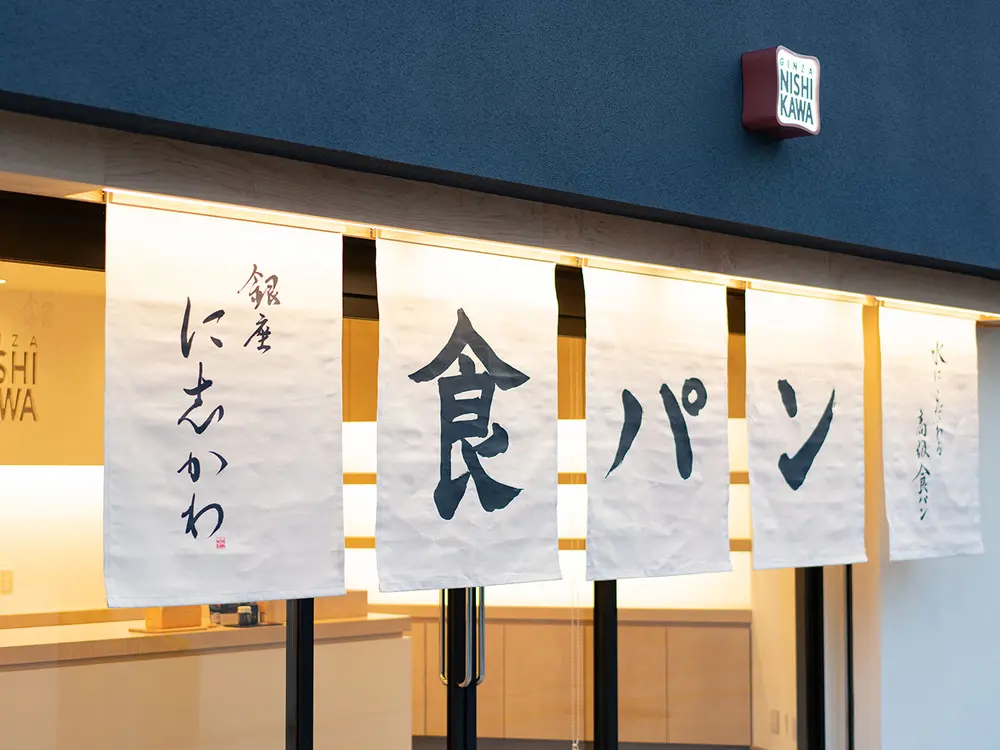 GINZA
NISHI
KAWA
銀座
にしかわ
食パン
水にこだわる
高級食パン
NZA
SHI
WA